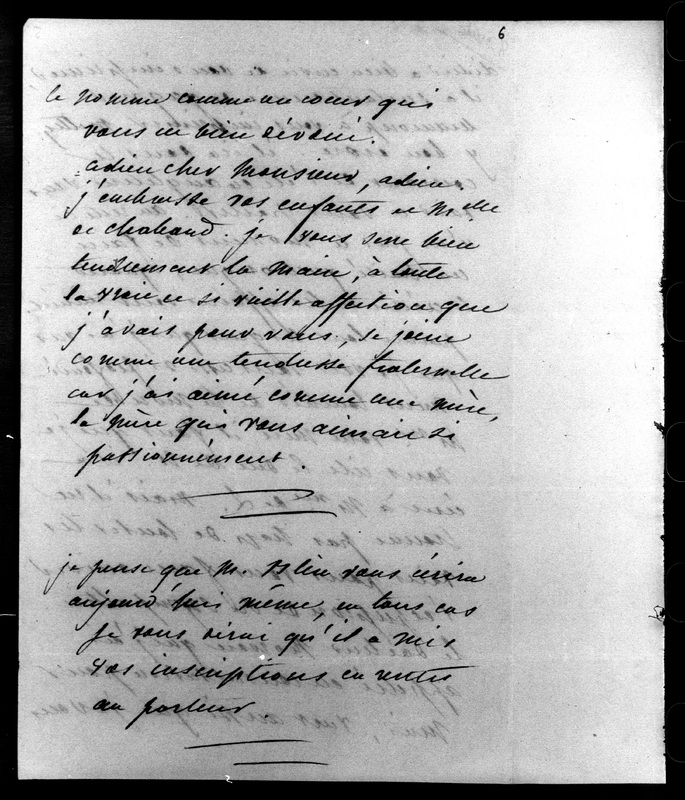 6
le nomme comme un cœur qui
vous est bien dévoué.
adieu cher Monsieur, adieu
j'embrasse vos enfants et Mlle
de chabaud. je vous serre bien
tendrement la main, à toute
la vraie et si vieille affection que
j'avais pour vous, se joint
comme une tendresse fraternelle
car j'ai aimé comme une mère,
la mère qui vous aimait si
passionnément.
je pense que M. Blin vous écrira
aujourd'hui même, en tous cas
je vous dirai qu'il a mis
vos inscriptions en rentes
au porteur